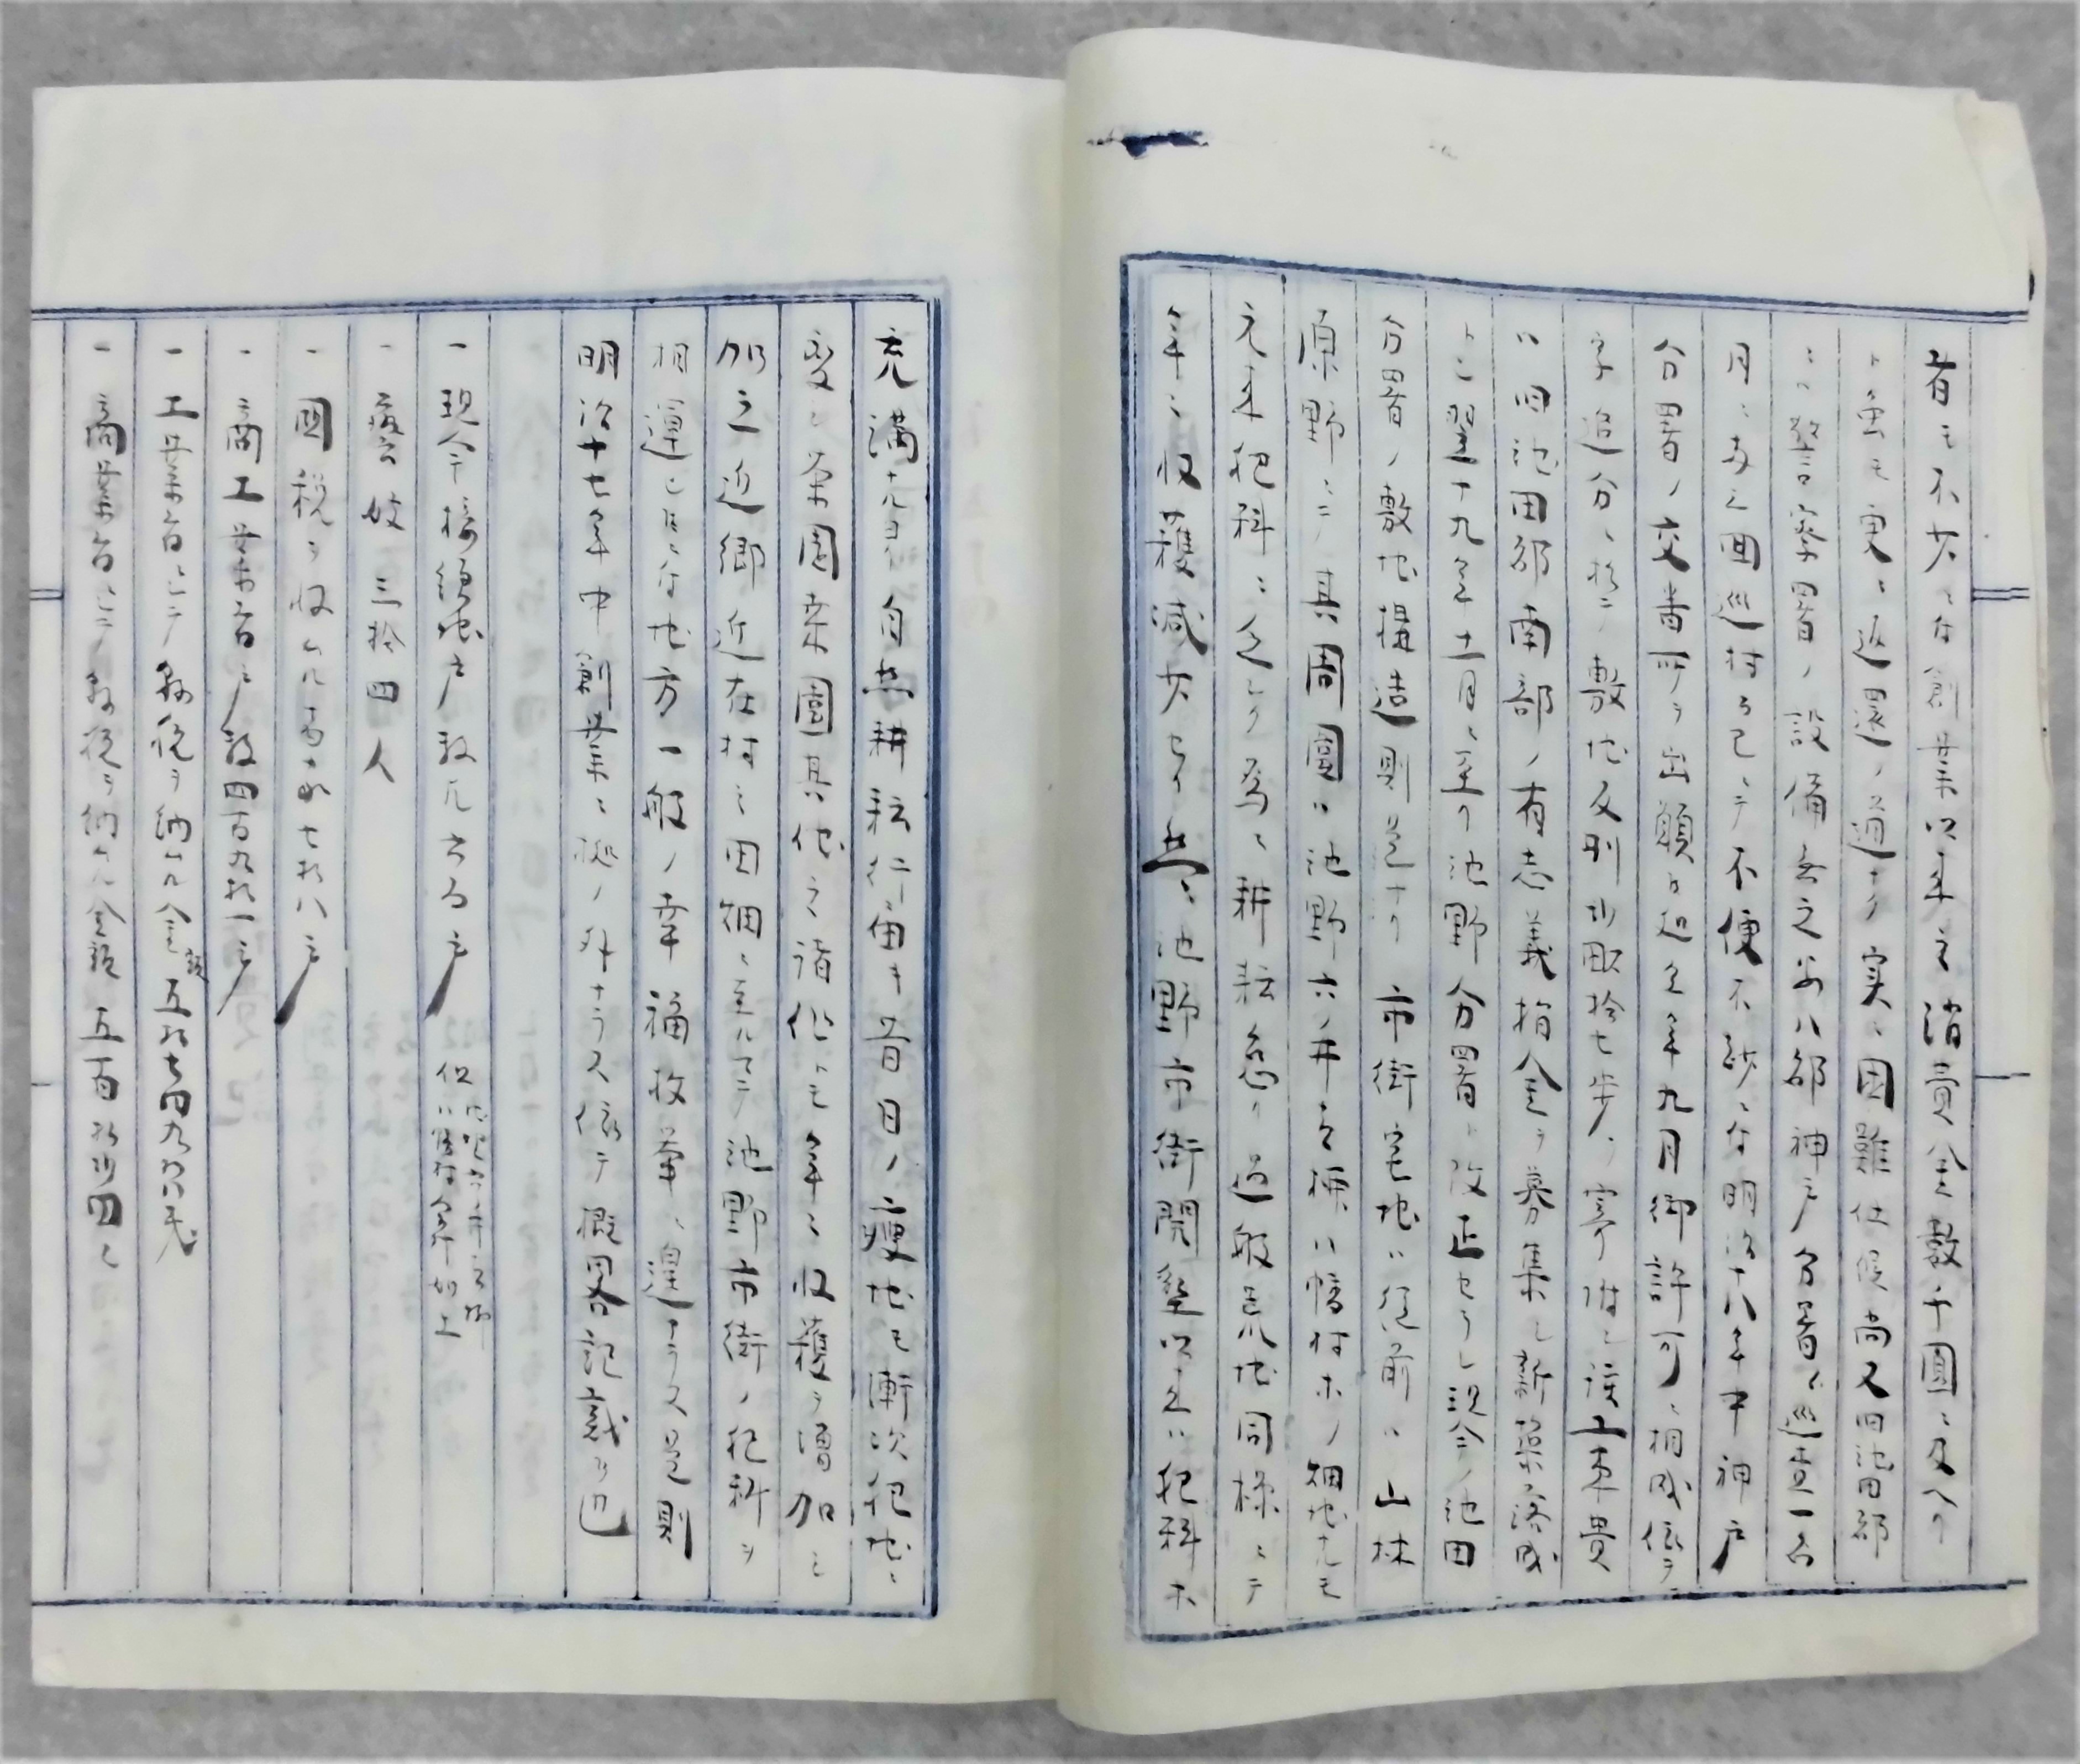 者モ不少ニ付創業以来之消費金数千圓ニ及ヘリ
ト虽モ更ニ返還ノ道ナク実ニ困難仕候尚又回池田郡
ニハ警察署ノ設備無之安八郡神戸分署ヨリ巡査一名
月ニ両三回巡村ノミニテ不便不尠ニ付明治十八年中神戸
分署ノ交番所ヲ出願シ超之年九月御許可ニ相成依テ
字追分ニ於テ敷地反別廿畝拾七歩ヲ寄附シ該工事費
ハ旧池田郡南部ノ有志義捐金ヲ募集シ新築落成
シ翌十九年十一月ニ至リ池野分署ト改正セラレ現今ノ池田
分署ノ敷地構造則是ナリ 市街宅地ハ従前ハ山林
原野ニシテ其周囲ハ池野六ノ井 八幡村ホノ畑地ナルモ
元来肥料ニ乏シク為ニ耕耘怠リ過般荒地同様ニテ
年ニ収穫減少セリ然ニ池野市街開墾以来ハ肥料ホ
充満ナルヨリ自然耕耘行届キ昔日ノ瘦地モ漸次肥地ニ
変シ茶園桑園其他之諸作トモ年ニ収穫ヲ増加シ
加之近郷近在村ニ田畑ニ至ルマテ池野市街ノ肥料ヲ
相運ヒ候ニ付地方一般ノ幸福枚挙ニ遑アラス是則
明治十七年中創業ニ拠ノ外ナラス依テ概畧記載乃也
一現今接続地戸数凡六百戸 但
一藝妓 三拾四人
一國税ヲ収ムル者 七拾八戸
一商工業者戸数四百九拾一戸
一工業者ニシテ縣税ヲ納ムル金額五拾七円九
一商業者ニシテ縣税ヲ納ムル金額 五百拾四円